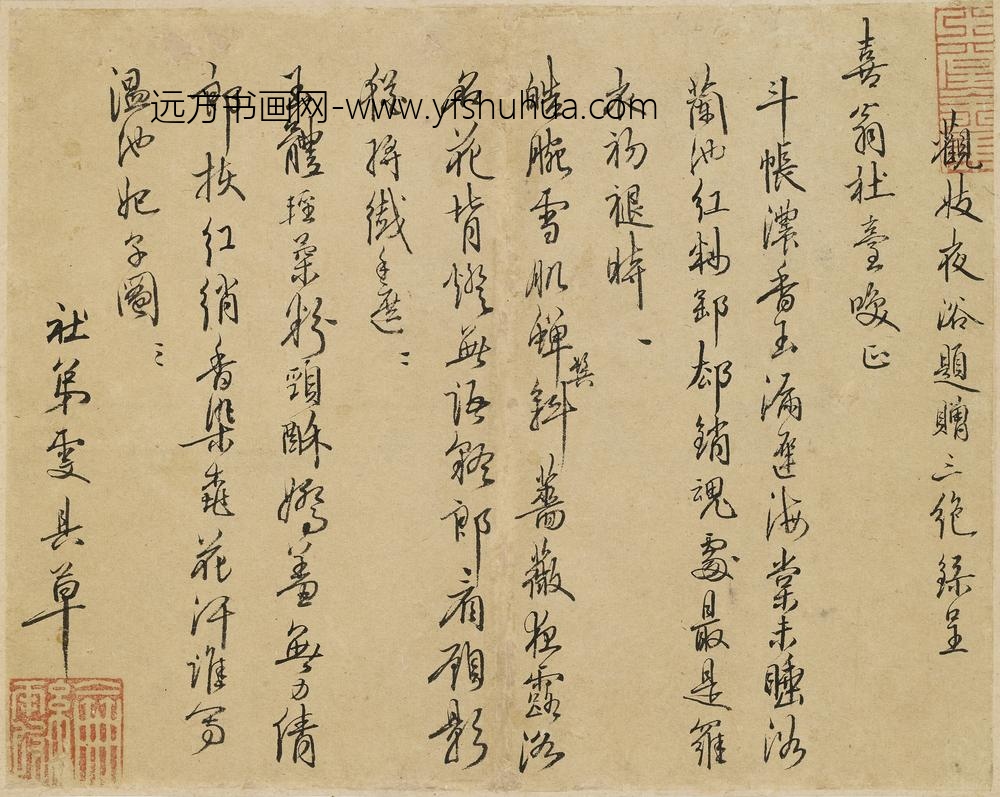 觀妓夜浴題贈三絕錄呈
喜翁社臺唆正
斗帳濃香玉漏遲海棠未睡浴
蘭池紅粉卸却銷魂處最是羅
衣初褪時 一
皓腕雪肌鬢斜薔薇夜露浴
名花背燈無語疑郎看顧影
獨將纖手遮 二
玉體輕柔粉頸酥嬌羞無力倩
郎扶紅綃香染桃花汗誰寫
溫池妃子圖 三
社弟雯具草
远方书画网-www.yfshuhua.com